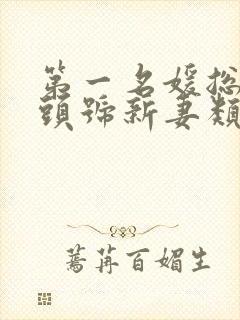 第一名媛总
頭號新妻類
蔫苒百媚生